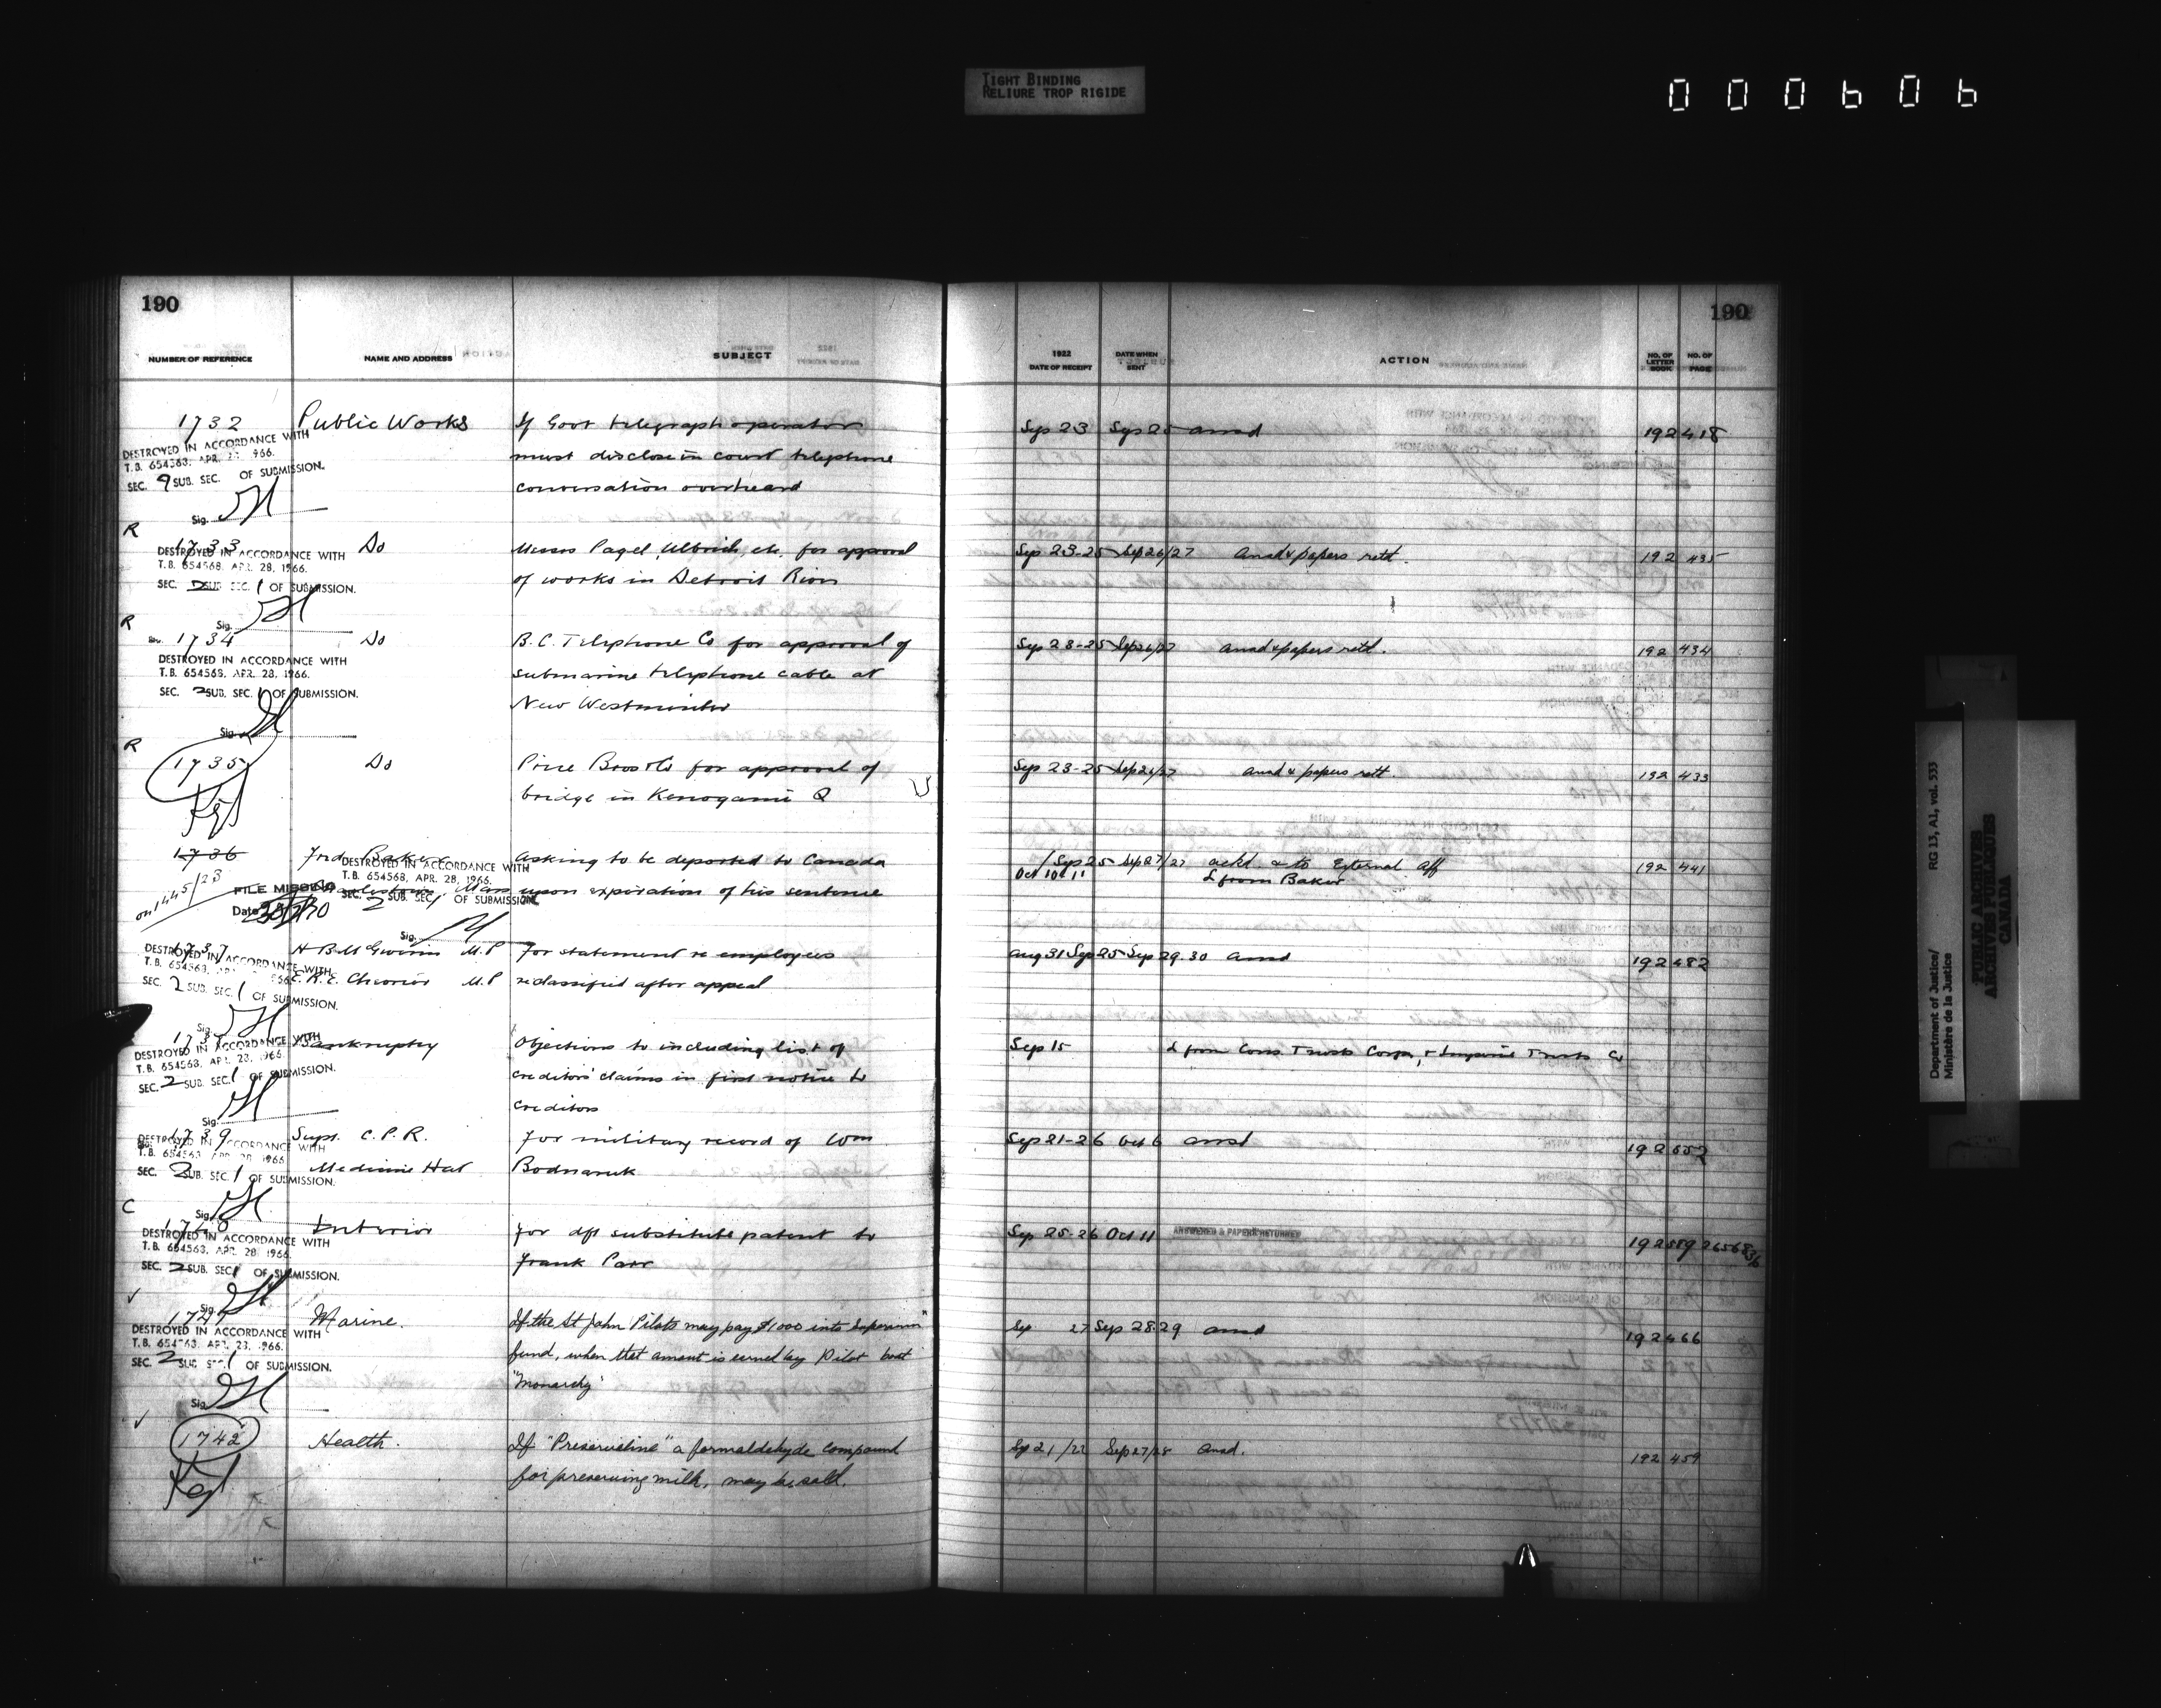 TIGHT BINDING
RELIURE TROP RIGIDE
000606
190
190
NUMBER OF REFERENCE NAME AND ADDRESS SUBJECT 1922 DATE OF RECEIPT DATE WHEN SENT ACTION NO. OF LETTER BOOK NO. OF PAGE
1732 Public Works If Govt telegraph operator Sep 23 Sep 25 ansd 192 418
DESTROYED IN ACCORDANCE WITH
must disclose in court telephone
T.B. 654568, APR. 28, 1966.
SEC. 9 SUB. SEC. OF SUBMISSION.
conversation overheard
Sig.
R
1733 Do Messrs Pagel, Ulbrich, etc. for approval Sep 23-25 Sep 26/27 Ansd & papers retd. 192 435
DESTROYED IN ACCORDANCE WITH
T.B. 654568, APR. 28, 1966.
of works in Detroit River
SEC. 2 SUB. SEC. 1 OF SUBMISSION.
Sig.
R
1734 Do B.C. Telephone Co for approval of Sep 23-25 Sep 26/27 ansd & papers retd. 192 434
DESTROYED IN ACCORDANCE WITH
T.B. 654568, APR. 28, 1966.
submarine telephone cable at
SEC. 2 SUB. SEC. 1 OF SUBMISSION.
New Westminster
Sig.
R
1735 Do Price Bros & Co for approval of Sep 23-25 Sep 26/27 ansd & papers rett. 192 433
bridge in Kenogami Q
Kept
1736 Fred Baker Asking to be deported to Canada Sep 25 Sep 27/27 ackd & to External Aff 192 441
DESTROYED IN ACCORDANCE WITH
T.B. 654568, APR. 28, 1966.
Oct 10 11 L from Baker
on 1445/23
FILE MISSING
Charlestown, Mass upon expiration of his sentence
SEC. 2 SUB. SEC. 1 OF SUBMISSION.
Date
Sig.
1737 M.P for statement re employees Aug 31 Sep 25 Sep 29.30 ansd 192 482
DESTROYED IN ACCORDANCE WITH
T.B. 654568,
E. R. E. Chevrier M.P reclassified after appeal
SEC. 2 SUB. SEC. 1 OF SUBMISSION.
Sig.
Bankruptcy Objections to including list of Sep 15 L from Cons. Trusts Corpn, & Imperial Trusts Co
DESTROYED IN ACCORDANCE WITH
T.B. 654568, APR. 28, 1966.
creditors' claims in first notice to
SEC. 2 SUB. SEC. 1 OF SUBMISSION.
creditors
Sig.
1739 Supt. C.P.R. for military record of Wm Sep 21-26 Oct 6 ansd 192 552
DESTROYED IN ACCORDANCE WITH
T.B. 654568, APR. 28, 1966
Medicine Hat Bodnaruk
SEC. 2 SUB. SEC. 1 OF SUBMISSION.
C
Sig.
1740 Interior for dft substitute patent to Sep 25-26 Oct 11 ANSWERED & PAPERS RETURNED 192 589
DESTROYED IN ACCORDANCE WITH
T.B. 654568, APR. 28, 1966.
Frank Parr
SEC. 2 SUB. SEC. 1 OF SUBMISSION.
Sig.
1741 Marine. If the St John Pilots may pay $1000 into Superann" Sep 27 Sep 28.29 ansd 192 466
DESTROYED IN ACCORDANCE WITH
T.B. 654568, APR. 28, 1966.
fund, when that amount is earned by Pilot boat
SEC. 2 SUB. SEC. 1 OF SUBMISSION.
"Monarchy"
Sig.
1742 Health. If "Preservaline" a formaldehyde compound Sep 21/22 Sep 27/28 ansd. 192 459
for preserving milk, may be sold.
Kept
Department of Justice/ RG 13, A1, vol. 533
Ministère de la Justice
PUBLIC ARCHIVES
ARCHIVES PUBLIQUES
CANADA